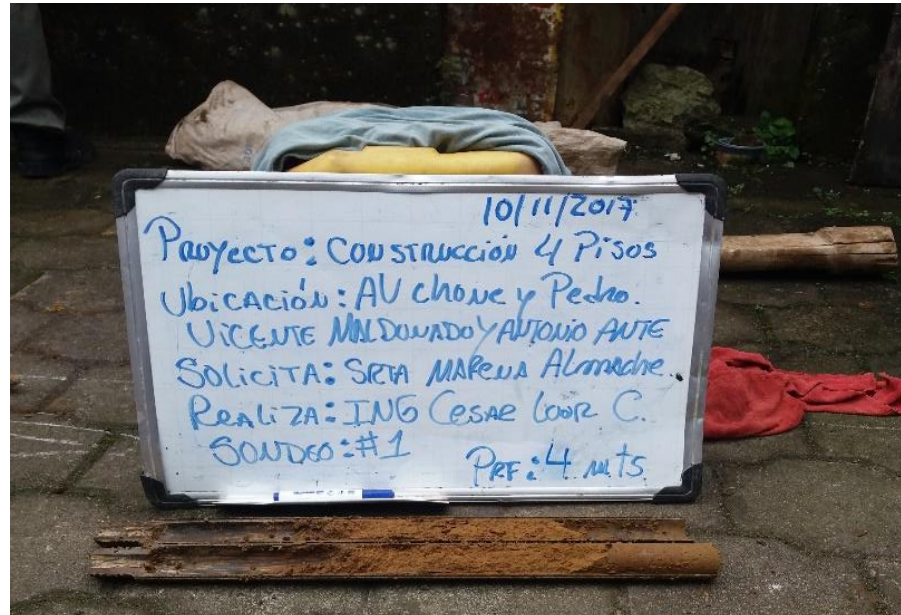 10/11/2017
Proyecto: Construcción 4 Pisos
Ubicación: AV chone y Pedro.
Vicente Maldonado y Antonio Ante
Solicita: SRTA Marena Almache.
Realiza: ING Cesar Loor C.
Sondeo: #1
Prf: 4 mts